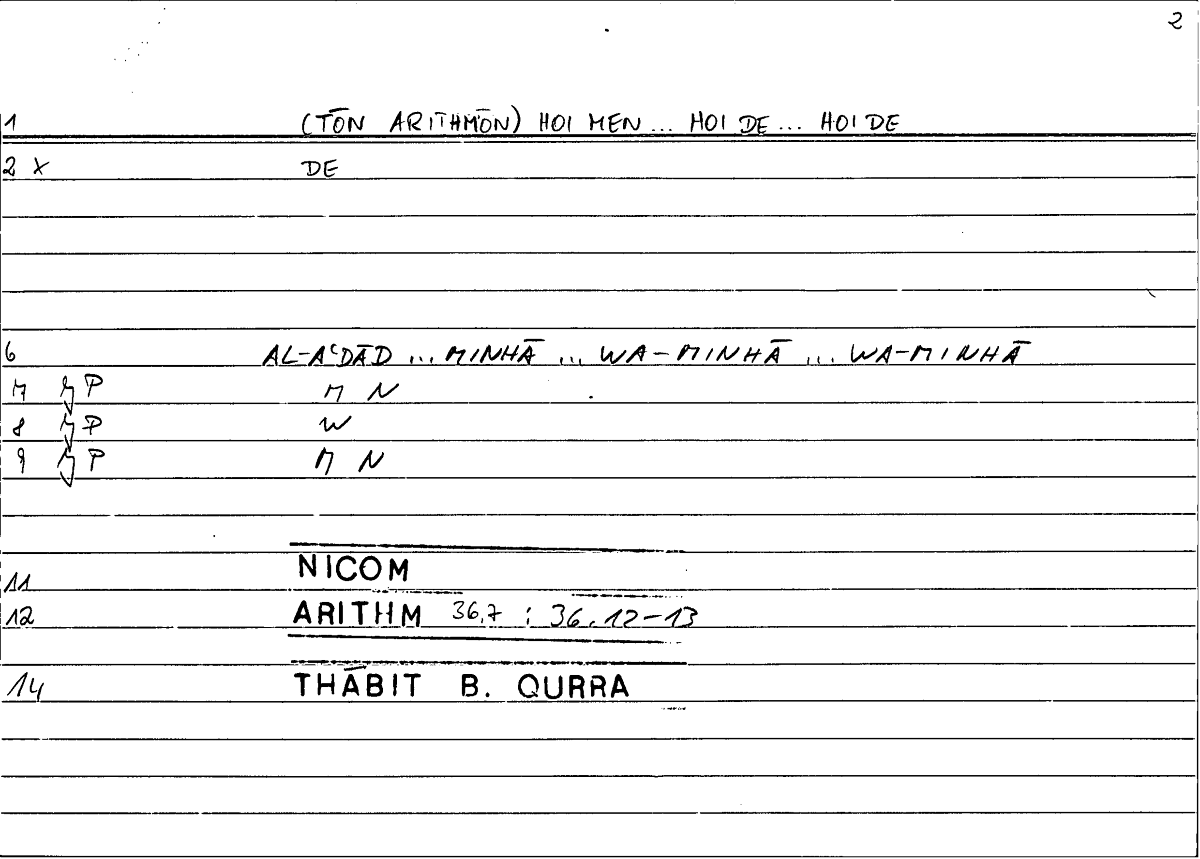 2
1 (TŌN ARITHMŌN) HOI MEN ... HOI DE ... HOI DE
2 X DE
6 AL-AʿDĀD ... MINHĀ ... WA-MINHĀ ... WA-MINHĀ
7 P M N
8 P W
9 P M N
11 NICOM
12 ARITHM 36,7 : 36.12-13
14 THĀBIT B. QURRA